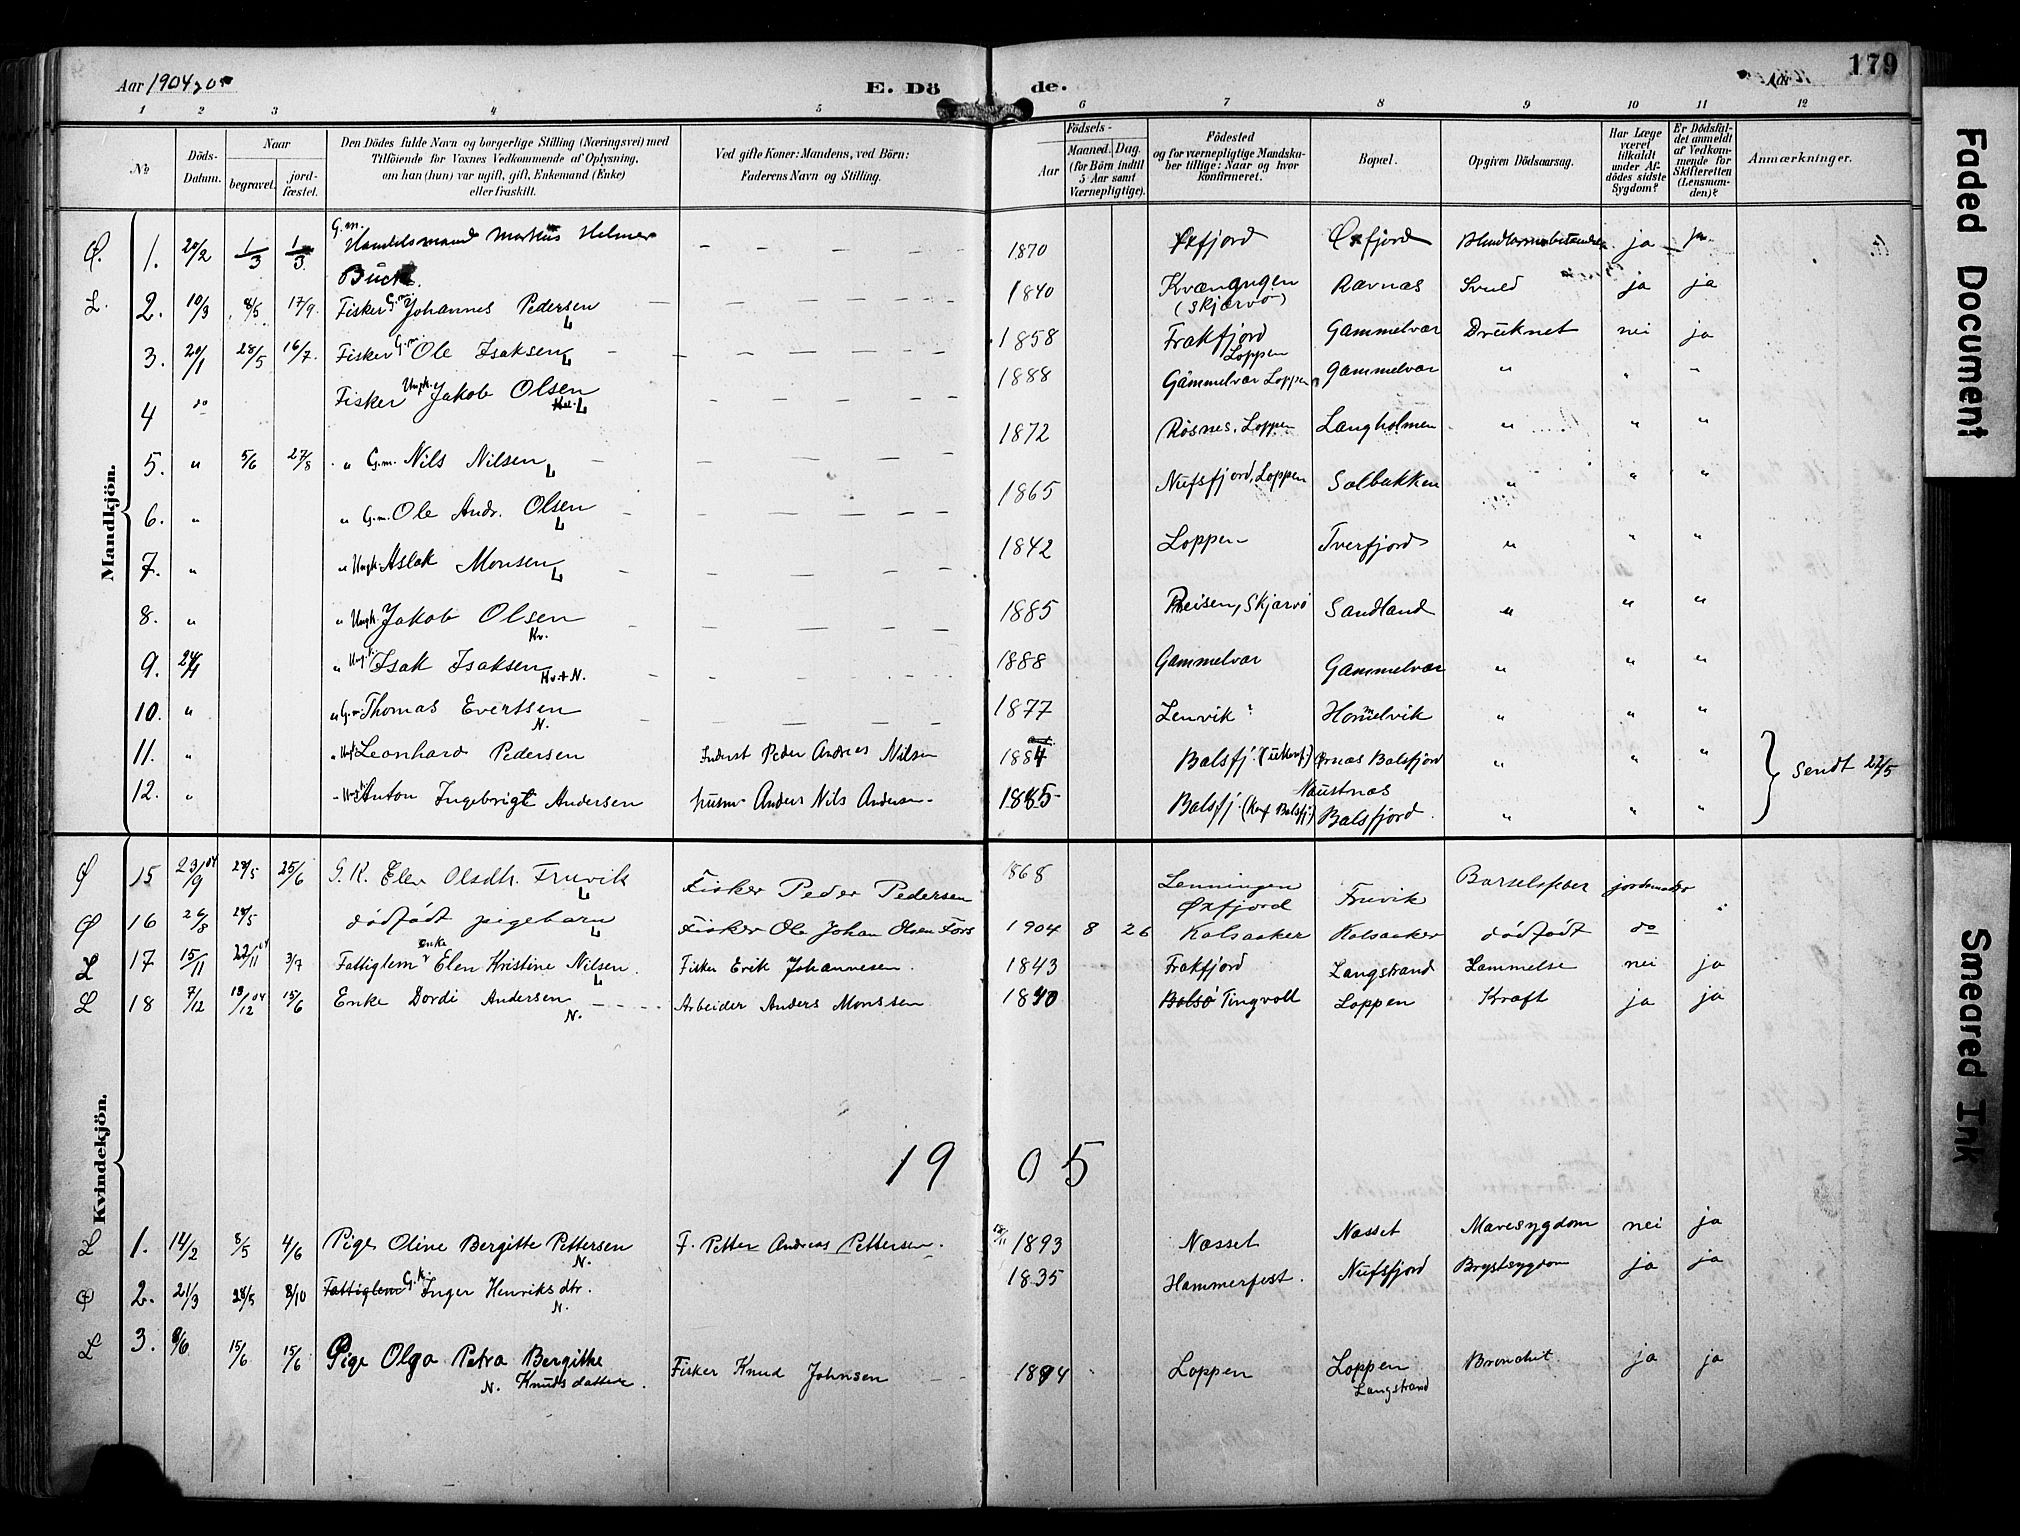 Aar 1904 & 05
E. Dö
de.
Aar
179
1 2 3 4 5 6 7 8 9 10 11 12
No
Döds-Datum.
Naar
begravet.
jord-fæstet.
Den Dödes fulde Navn og borgerlige Stilling (Næringsvei) med
Tilföiende for Voxnes Vedkommende af Oplysning,
om han (hun) var ugift, gift, Enkemand (Enke)
eller fraskilt.
Ved gifte Koner: Mandens, ved Börn:
Faderens Navn og Stilling.
Födsels-
Aar
Maaned. Dag.
(for Börn indtil
5 Aar samt
Værnepligtige).
Födested
og for værnepligtige Mandska-
ber tillige: Naar og hvor
konfirmeret.
Bopæl.
Opgiven Dödsaarsag.
Har Læge
været
tilkaldt
under Af-
dödes sidste
Sygdom?
Er Dödsfal-
det anmeldt
af Vedkom-
mende for
Skifteretten
(Lensman-
den)?
Anmærkninger.
Mandkjön.
Ø. 1. 20/2 1/3 1/3 G.m. Handelsmand Markus Helmer Buck. 1870 Øxfjord Øxfjord Blindtarmsbetændelse ja ja
L. 2. 10/3 8/5 17/9 Fisker G.m. Johannes Pedersen L 1840 Kvænangen (Skjærvø) Ravnæs Svuld ja ja
3. 20/1 28/5 16/7. Fisker G.m. Ole Isaksen L 1858 Frakfjord Loppen Gammelvær Druknet nei ja
4 do Fisker Ungk. Jakob Olsen L 1888 Gammelvær Loppen Gammelvær " " "
5. " 5/6 27/8 " G.m. Nils Nilsen L 1872 Røsnes, Loppen Langholmen " " "
6. " " G.m. Ole Andr. Olsen L 1865 Nufsfjord, Loppen Salbakken " " "
7. " " Ungk. Aslak Monsen L 1842 Loppen Tverfjord " " "
8. " " Ungk. Jakob Olsen Kv. 1885 Reisen, Skjærvø Sandland " " "
9. 24/1 " Ungk. Isak Isaksen Kv+N. 1888 Gammelvær Gammelvær " " "
10. " " G.m. Thomas Evertsen N. 1877 Lenvik ? Hommelvik " " "
11. " " Ungk. Leonhard Pedersen Inderst Peder Andreas Nilsen 1884 Balsfj. (ukonf.) Ørnæs Balsfjord " " "
12. " " Ungk. Anton Ingebrigt Andersen husm. Anders Nils Andersen. 1885 Balsfj. (Konf Balsfj) Naustnæs Balsfjord. " " "
Sendt 22/5
Kvindekjön.
Ø 15 23/9 04 28/5 25/6 G.K. Elen Olsdtr. Fruvik L Fisker Peder Pedersen 1868 Lenningen Øxfjord Fruvik Barselsfeber jordemoder "
Ø 16 26/8 28/5 dødfødt pigebarn L Fisker Ole Johan Olsen Fors 1904 8 26 Kolsaaker Kolsaaker dødfødt do
L 17 15/11 22/11 04 3/7 Fattiglem enke Elen Kristine Nilsen. L Fisker Erik Johannesen. 1843 Frakfjord Langstrand Lammelse nei ja
L 18 7/12 18/12 04 15/6 Enke Dordi Andersen N. Arbeider Anders Monssen 1840 Bolsø Tingvoll Loppen Kræft ja ja
1905
L 1. 14/2 8/5 4/6 Pige Oline Bergitte Pettersen N. F. Petter Andreas Pettersen. 1893 Næsset Næsset Mavesygdom nei ja
Ø 2. 21/3 28/5 8/10 Fattiglem G.k. Inger Henriksdtr. N. 1835 Hammerfest. Nufsfjord Brystsygdom ja ja
L 3. 8/6 15/6 15/6 Pige Olga Petra Bergitte N. Knudsdatter. Fisker Knud Johnsen 1894 Loppen Loppen Langstrand Bronchit. ja ja
Faded Document
Smeared Ink